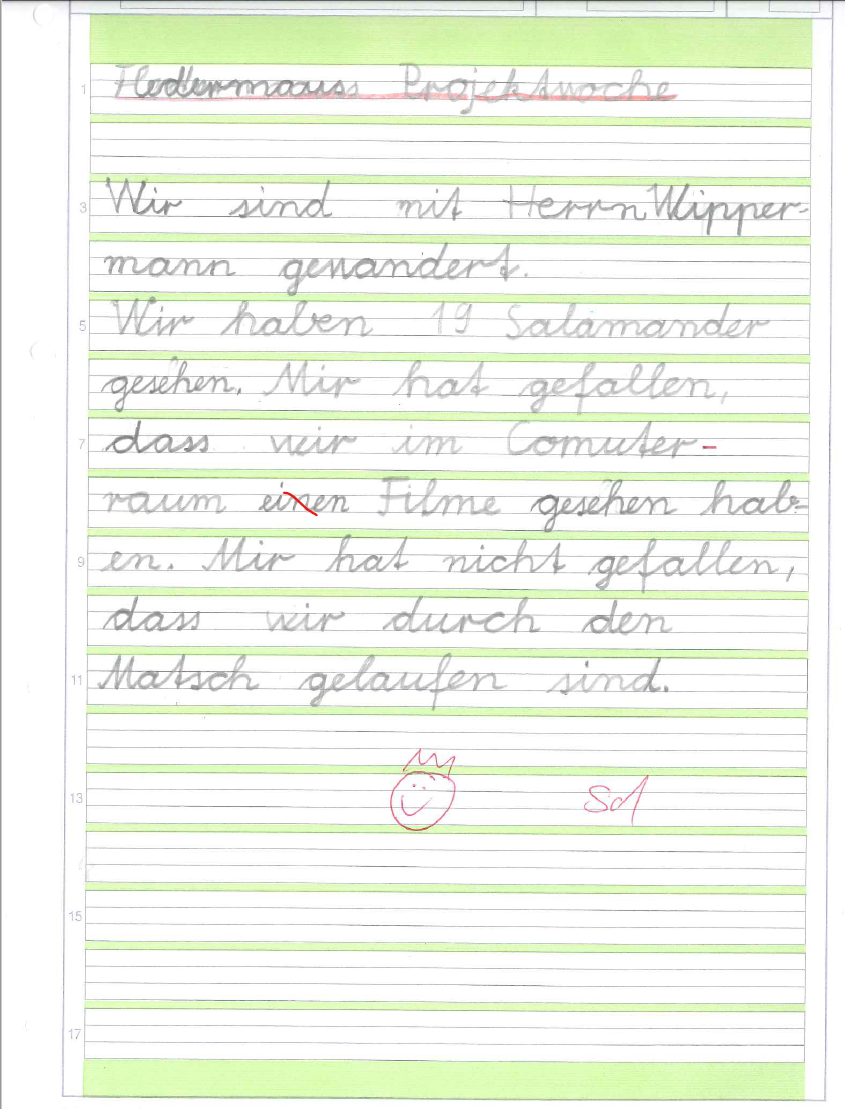 Fledermauss Projektwoche
Wir sind mit Herrn Wipper-
mann gewandert.
Wir haben 19 Salamander
gesehen. Mir hat gefallen,
dass wir im Comuter-
raum einen Filme gesehen hab-
en. Mir hat nicht gefallen,
dass wir durch den
Matsch gelaufen sind.
Sd
1
3
5
7
9
11
13
15
17